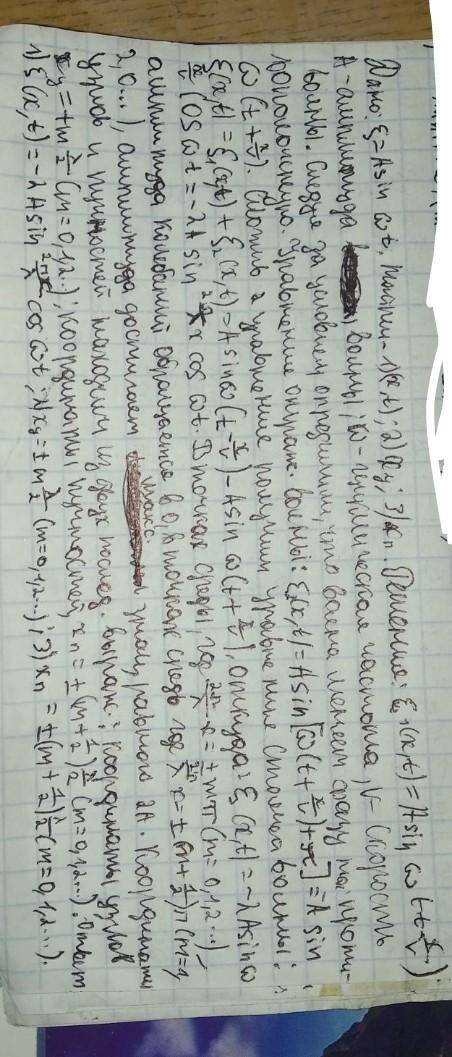 Дано: ξ=Asin ωt. Найти - 1)(x,t); 2) xу; 3) xn. Решение: ξ1(x,t)=Asin ω(t-x/v);
A-амплитуда волны; ω-циклическая частота, v-скорость
волны. Следуя за условием определим, что волна меняет фазу на проти-
воположную. Уравнение отраж. волны: ξ2(x,t)=Asin[ω(t+x/v)+π]=Asin
ω(t+x/v). Сложив 2 уравнения получим уравнение стоячей волны:
ξ(x,t)=ξ1(x,t)+ξ2(x,t)=Asinω(t-x/v)-Asin ω(t+x/v), откуда: ξ(x,t)=-2Asinω
x/v cosωt=-2Asin 2π/λ x cosωt. В точках среды, где 2π/λ x=±mπ (m=0,1,2...)
амплитуда колебаний обращается в 0, в точках среды где 2π/λ x=±(m+1/2)π (m=1,
2,0...), амплитуда достигает макс. знач, равного 2A. Координаты
узлов и пучностей находим из двух послед. выраж.: Координаты узлов
xу=±m λ/2 (m=0,1,2...); координаты пучностей, xn=±(m+1/2)λ/2 (m=0,1,2...). Ответ:
1) ξ(x,t)=-2Asin 2πx/λ cosωt; 2) xу=±m λ/2 (m=0,1,2...); 3) xn=±(m+1/2)λ/2 (m=0,1,2...).